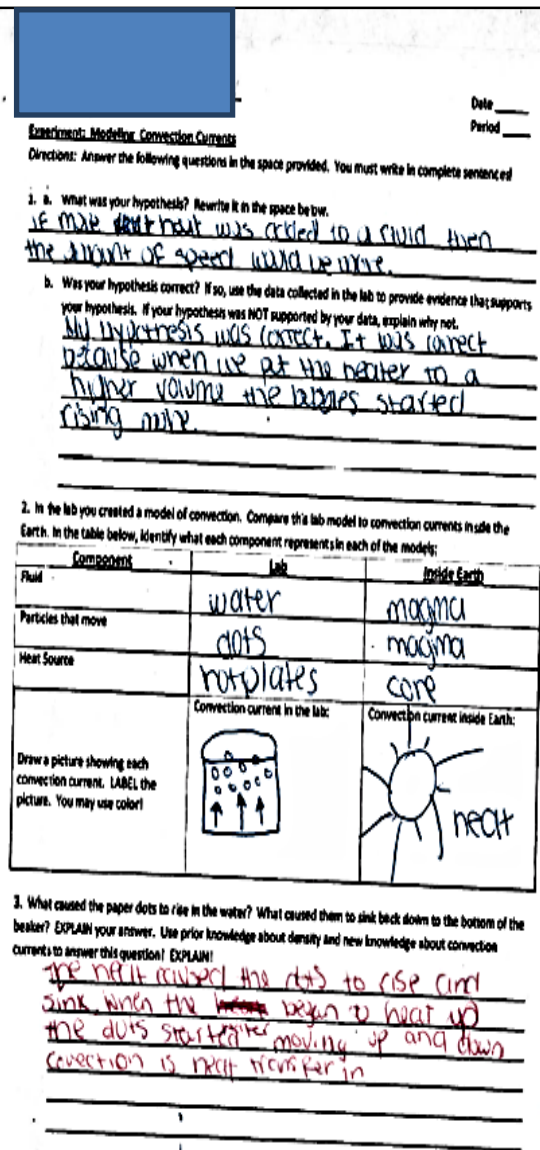 Date ____
Period ____
Experiment: Modeling Convection Currents
Directions: Answer the following questions in the space provided. You must write in complete sentences!
1. a. What was your hypothesis? Rewrite it in the space below.
if more heat was added to a fluid then
the amount of speed would be more.
b. Was your hypothesis correct? If so, use the data collected in the lab to provide evidence that supports
your hypothesis. If your hypothesis was NOT supported by your data, explain why not.
My hypothesis was correct. It was correct
because when we put the heater to a
higher volume the started
rising more.
2. In the lab you created a model of convection. Compare this lab model to convection currents inside the
Earth. In the table below, identify what each component represents in each of the models:
Component Lab Inside Earth
Fluid water magma
Particles that move dots magma
Heat Source hotplates core
Convection current in the lab: Convection current inside Earth:
Draw a picture showing each
convection current. LABEL the
picture. You may use color!
heat
3. What caused the paper dots to rise in the water? What caused them to sink back down to the bottom of the
beaker? EXPLAIN your answer. Use prior knowledge about density and new knowledge about convection
currents to answer this question! EXPLAIN!
The heat caused the dots to rise and
sink. when the water began to heat up
the dots started moving up and down
covection is heat transfer in